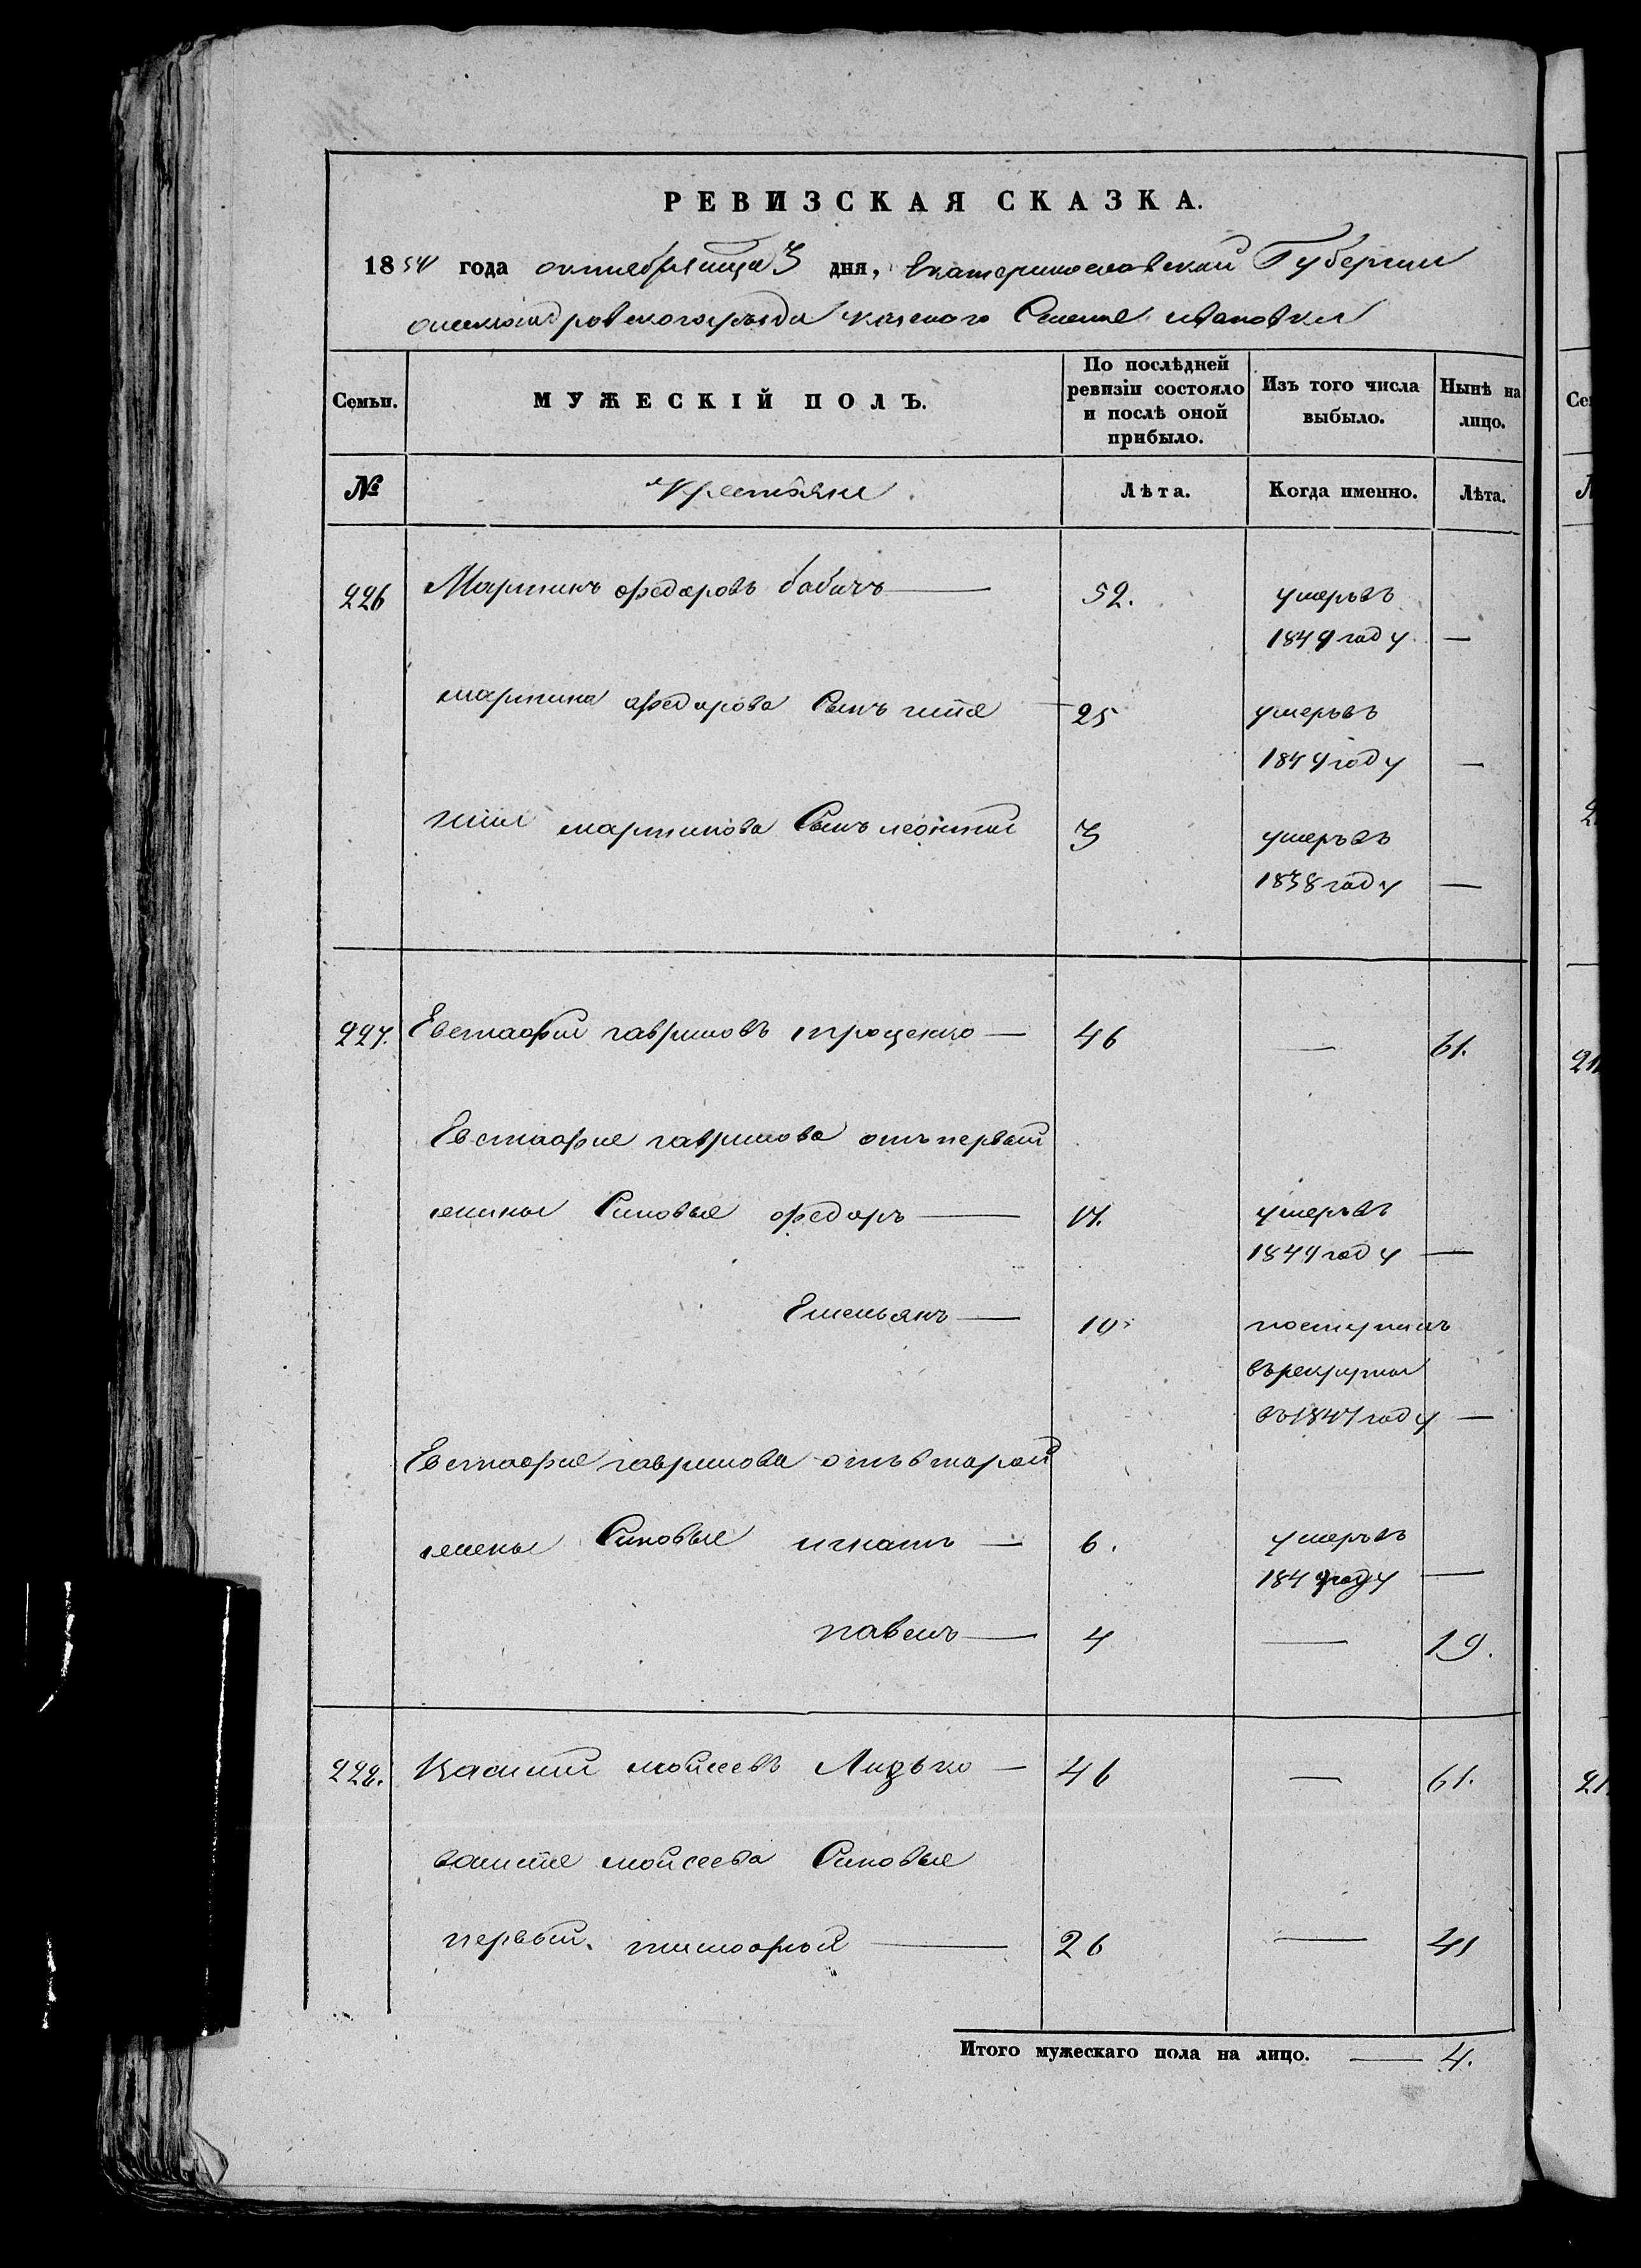 РЕВИЗСКАЯ СКАЗКА.
1854 года октября мца 3 дня, Екатеринославской Губернии
александровского уезда казеного Селения ивановки
Семьи. МУЖЕСКІЙ ПОЛЪ. По послѣдней ревизіи состояло и послѣ оной прибыло. Изъ того числа выбыло. Нынѣ на лицо.
№ Крестьяне Лѣта. Когда именно. Лѣта.
226 Мартинъ федоровъ бабичъ — 52. умеръ въ
1849 году —
мартина федорова Сынъ 25 умеръ въ
1849 году —
мартинова Сынъ леонтий 3 умеръ въ
1838 году —
227. Евстафий гавриловъ проценко — 46 — 61.
Евстафия гаврилова отъ первой
жены Синовья федоръ — 17. умеръ въ
1849 году —
Емельянъ — 10. поступилъ
въ рекруты
въ 1847 году —
Евстафия гаврилова отъ второй
жены Синовья игнатъ — 6. умеръ въ
1849 году —
павелъ — 4 — 19.
228. Василий мойсеевъ Лизько — 46 — 61.
василия мойсеева Синовья
первый. тимофей — 26 — 41
Итого мужескаго пола на лицо. — 4.